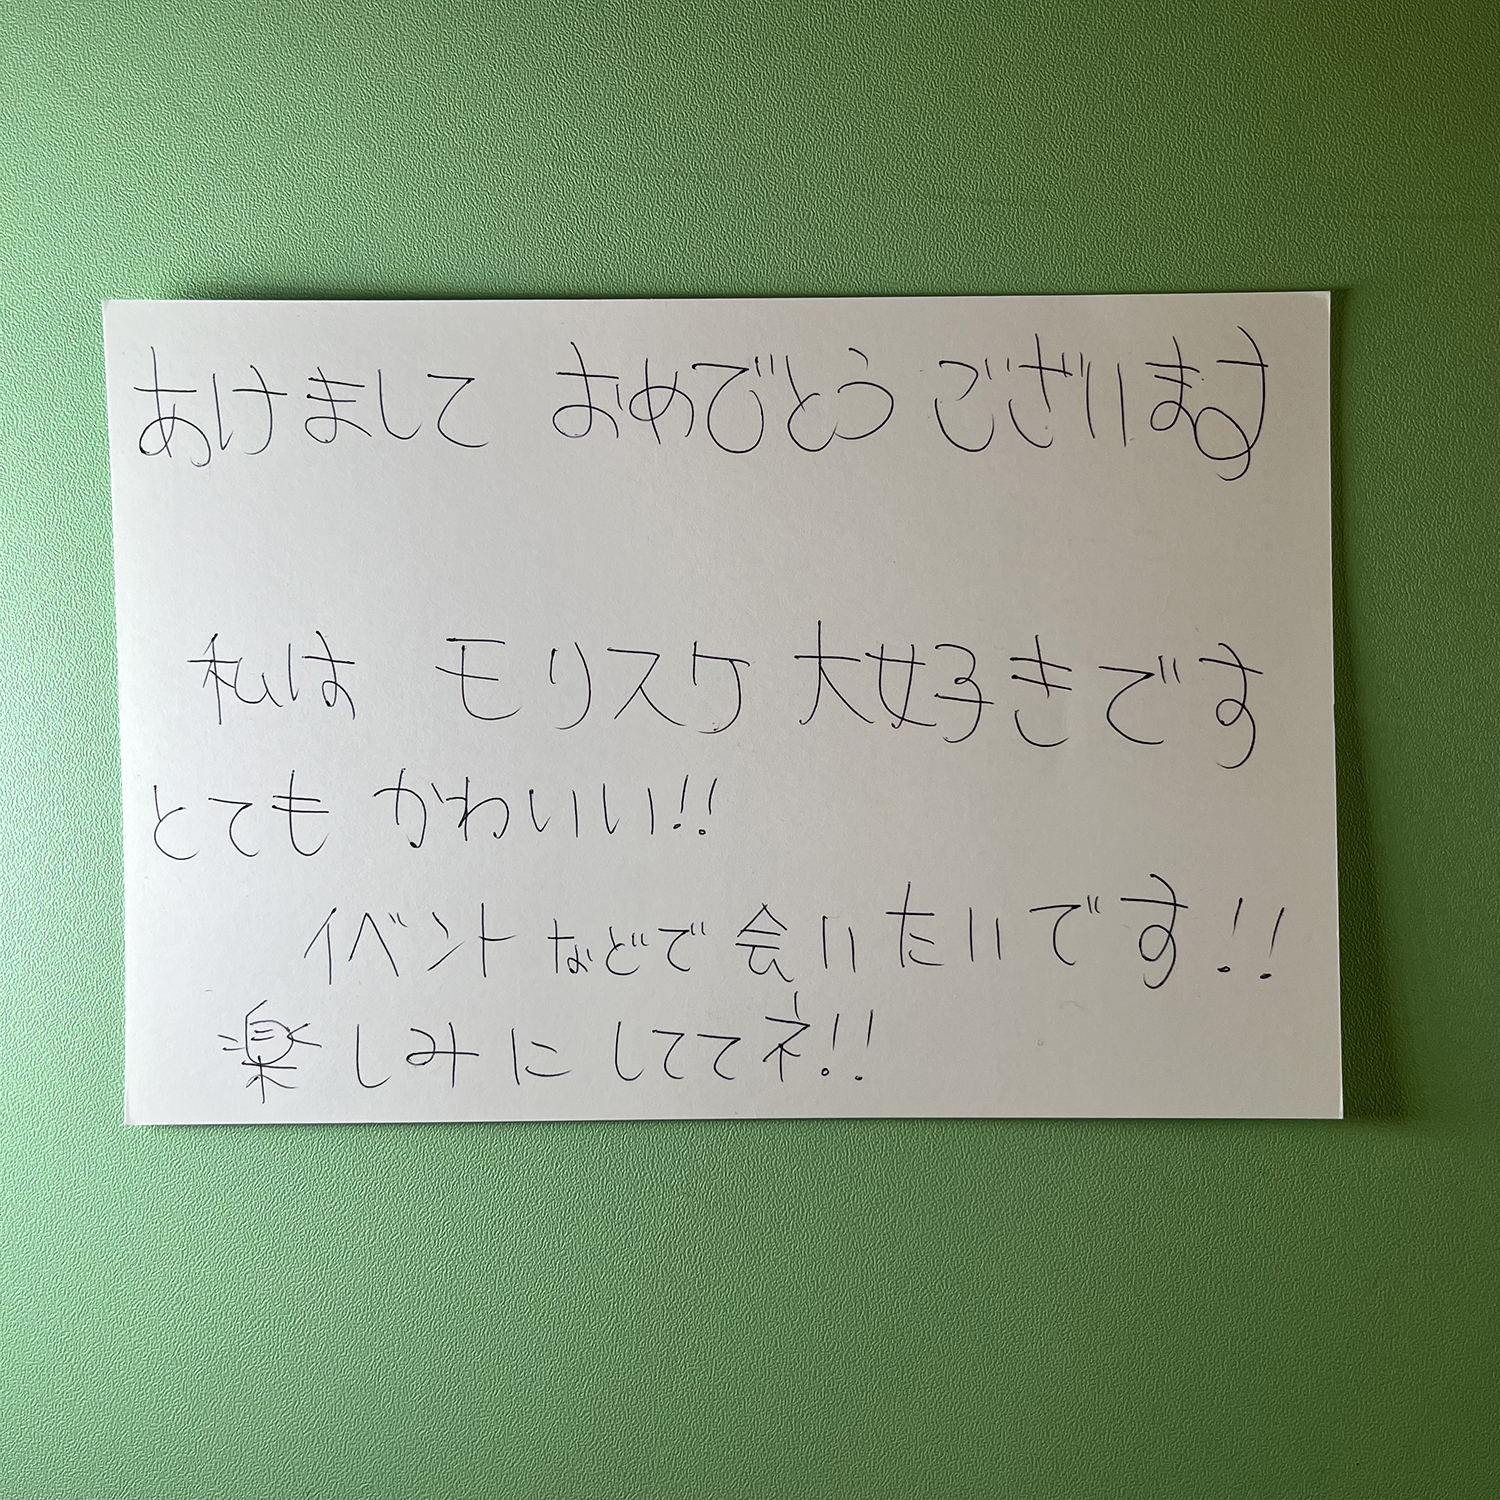 あけまして おめでとう ございます
私は モリスケ 大好きです
とても かわいい!!
イベント などで 会いたいです!!
楽しみに しててネ!!